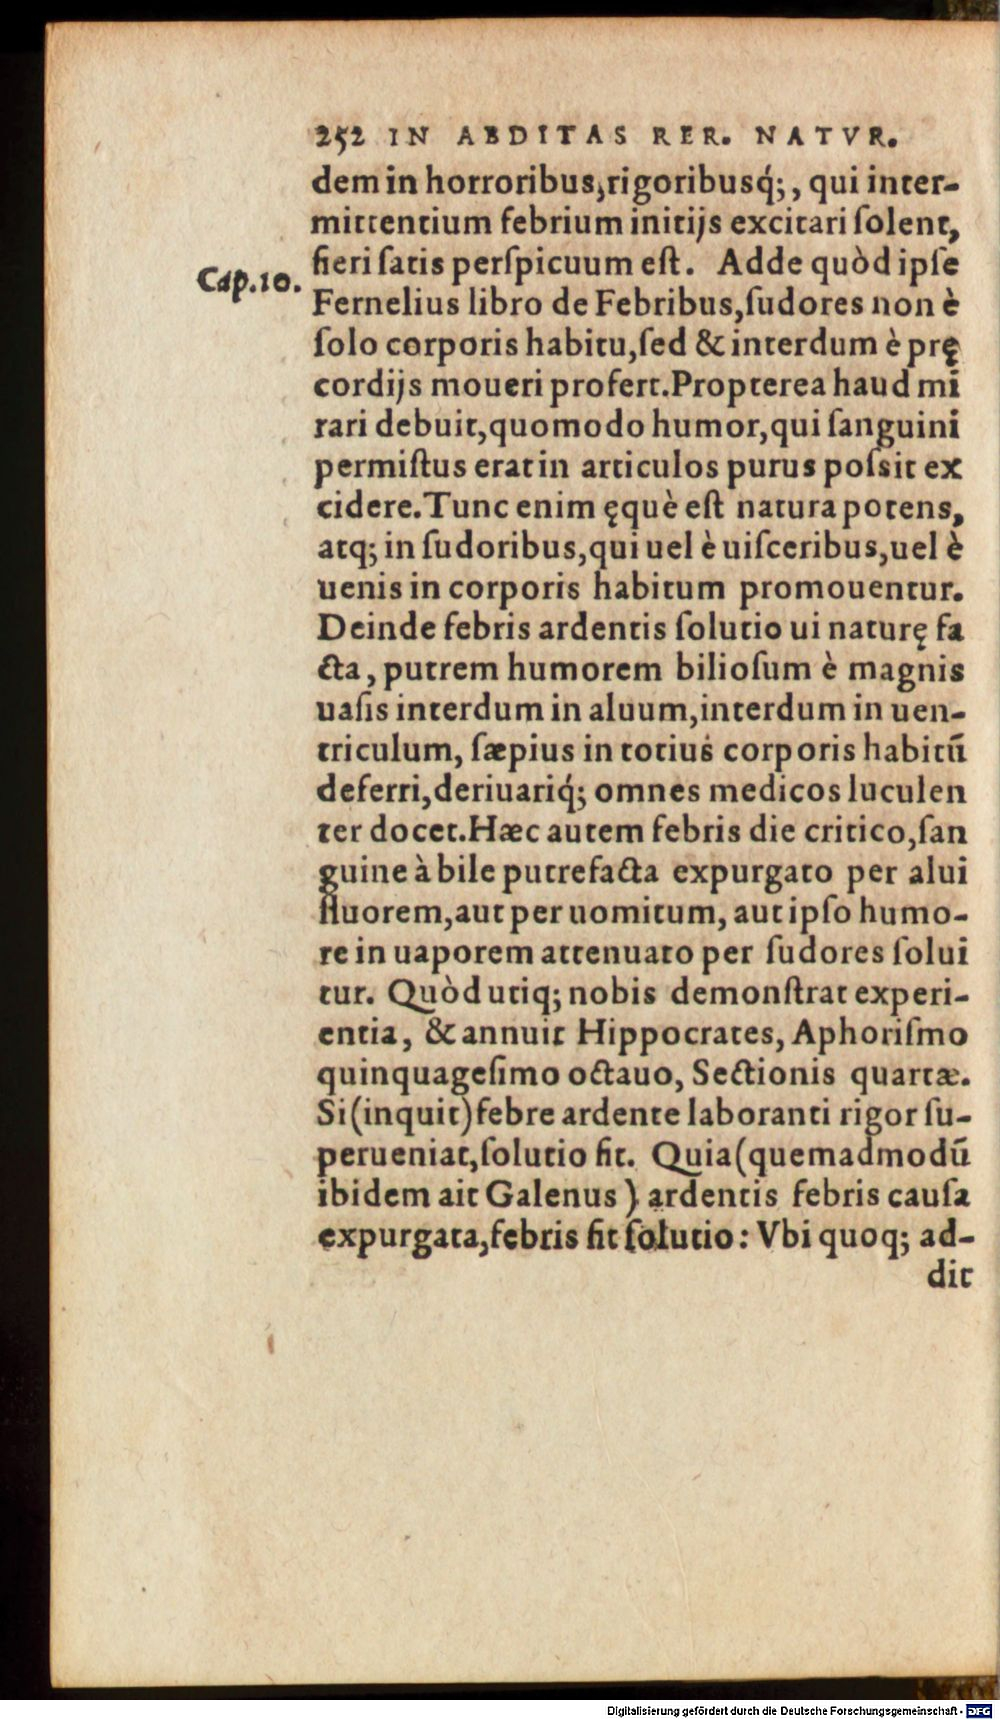 252 IN ABDITAS RER. NATVR.
dem in horroribus,rigoribusq́;, qui inter-
mittentium febrium initijs excitari ſolent,
fieri ſatis perſpicuum eſt. Adde quòd ipſe
Cap.10.
Fernelius libro de Febribus,ſudores non è
ſolo corporis habitu,ſed & interdum è prę
cordijs moueri profert.Propterea haud mi
rari debuit,quomodo humor,qui ſanguini
permiſtus erat in articulos purus poſsit ex
cidere.Tunc enim ęquè eſt natura potens,
atq; in ſudoribus,qui uel è uiſceribus,uel è
uenis in corporis habitum promouentur.
Deinde febris ardentis ſolutio ui naturę fa
cta, putrem humorem bilioſum è magnis
uaſis interdum in aluum,interdum in uen-
triculum, ſæpius in totius corporis habitũ
deferri,deriuariq́; omnes medicos luculen
ter docet.Hæc autem febris die critico,ſan
guine à bile putrefacta expurgato per alui
fluorem,aut per uomitum, aut ipſo humo-
re in uaporem attenuato per ſudores ſolui
tur. Quòd utiq; nobis demonſtrat experi-
entia, & annuit Hippocrates, Aphoriſmo
quinquageſimo octauo, Sectionis quartæ.
Si(inquit)febre ardente laboranti rigor ſu-
perueniat,ſolutio fit. Quia(quemadmodũ
ibidem ait Galenus) ardentis febris cauſa
expurgata,febris fit ſolutio: Vbi quoq; ad-
dit
Digitalisierung gefördert durch die Deutsche Forschungsgemeinschaft - DFG